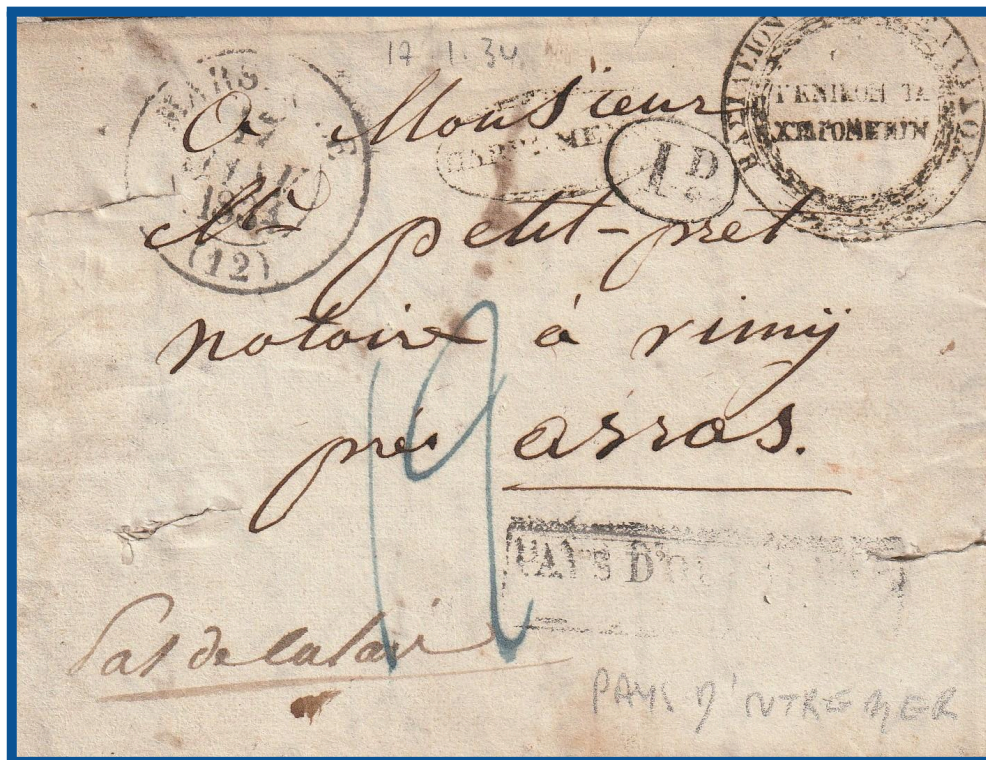 17-1-34
MARS E
JANV
1834
(12)
ΒΑΣΙΛΕΙΟΝ
ΓΕΝΙΚΟΝ ΤΑ
ΧΥΔΡΟΜΕΙΟΝ
1 D.
A Monsieur
Mr petit-pret
notaire à vimÿ
près arras.
19
PAYS D'O
Pas de Calais
PAYS D'OUTREMER